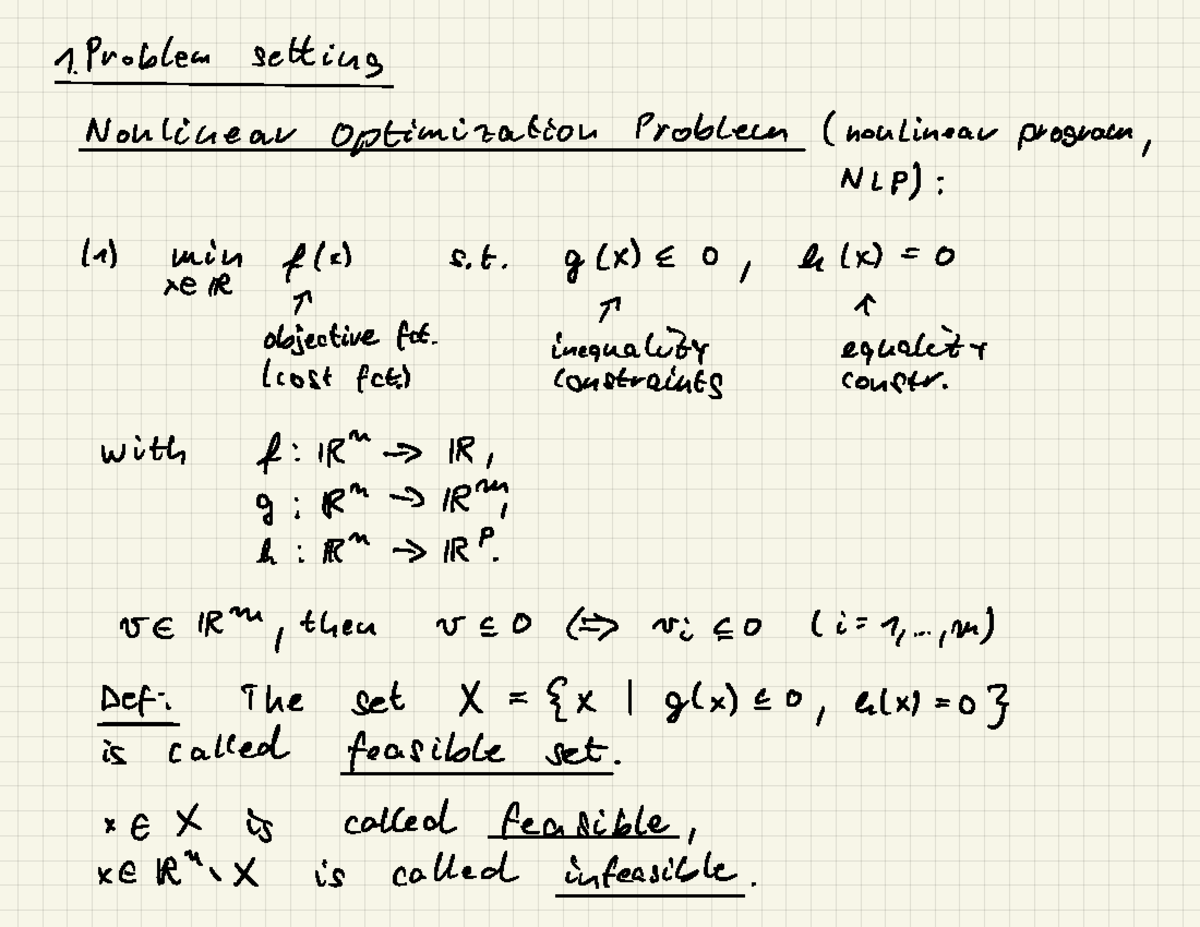 1. Problem setting
Nonlinear Optimization Problem (nonlinear program,
NLP):
(1) min f(x) s.t. g(x) ≤ 0, h(x) = 0
x∈ℝ
↑ ↑ ↑
objective fct. inequality equality
(cost fct.) constraints constr.
with f: ℝⁿ → ℝ,
g: ℝⁿ → ℝᵐ,
h: ℝⁿ → ℝᵖ.
v∈ ℝᵐ, then v ≤ 0 ⇔ vᵢ ≤ 0 (i = 1,...,m)
Def.: The set X = {x | g(x) ≤ 0, h(x) = 0}
is called feasible set.
x ∈ X is called feasible,
x∈ ℝⁿ \ X is called infeasible.